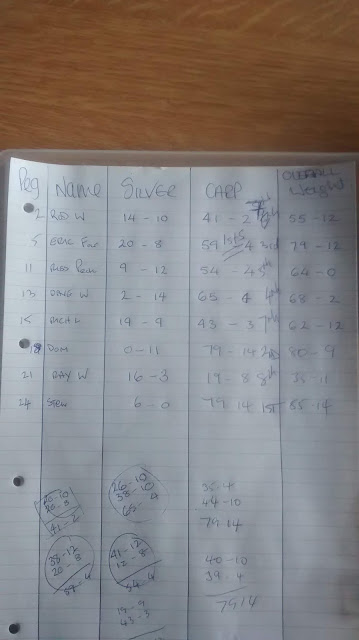 Peg Name SILVER CARP OVERALL Weight
2 ROD W 14-10 41-2 55-12
5 ERIC 20-8 59-4 3rd 79-12
1st S
11 9-12 54-4 5th 64-0
13 W 2-14 65-4 4th 68-2
15 19-9 43-3 7th 62-12
18 DOM 0-11 79-14 2nd 80-9
21 RAY W 16-3 19-8 8th 35-11
24 STEW 6-0 79-14 1st 85-14
20-10 26-10 35-4
20-8 38-10 44-10
41-2 65-4 79 14
38-12 41-12 40-10
20-8 12-8 39-4
59-4 54-4 79 14
19-9
43-3